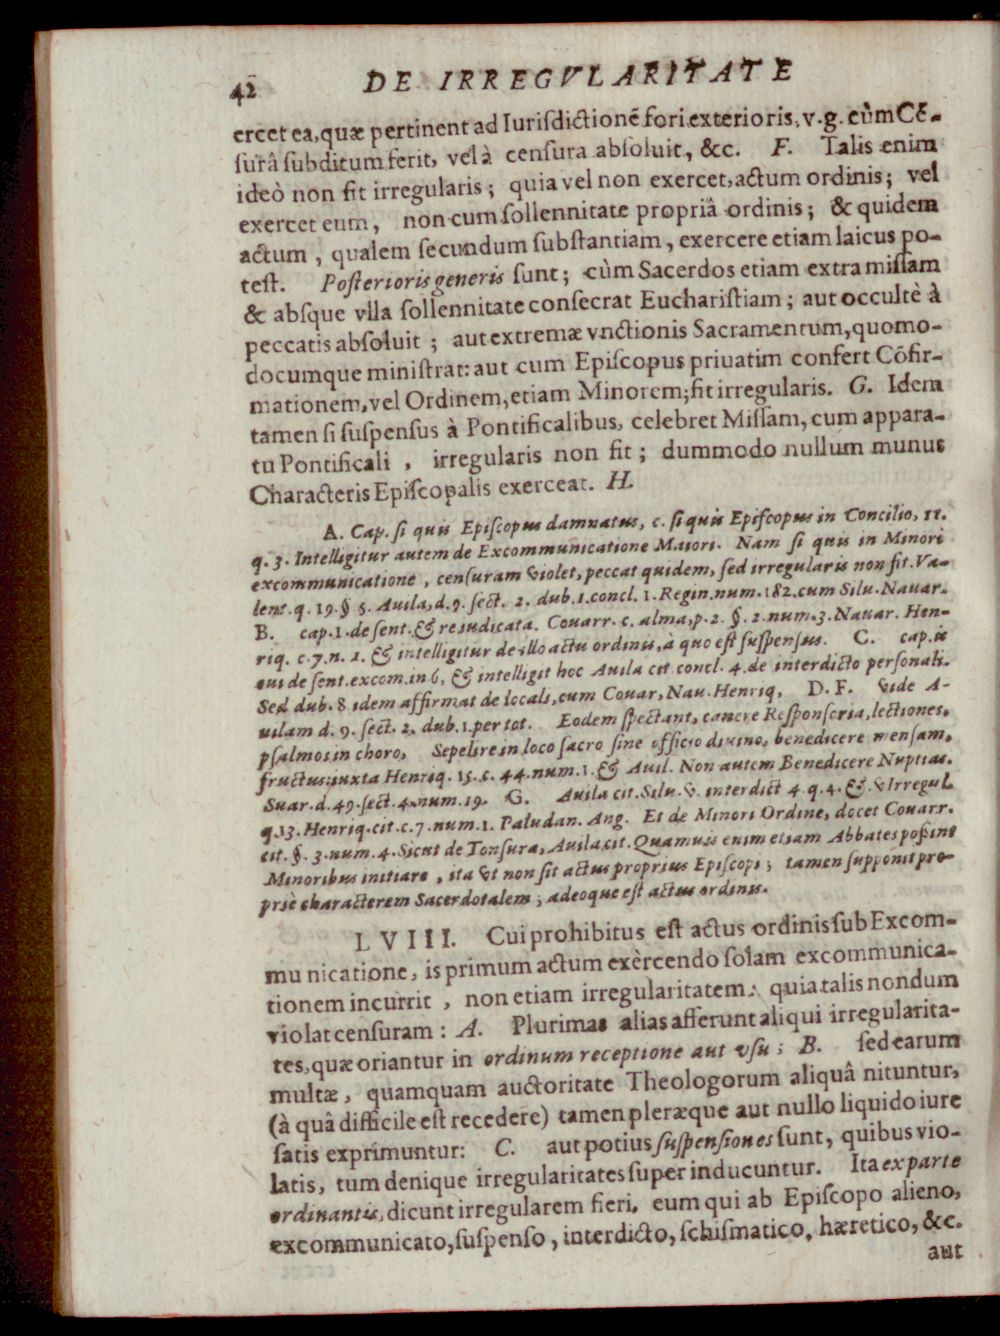 42 DE IRREGVLARITATE
ercet ea, quæ pertinent ad Iurisdictionē fori exterioris, v. g. cùm Cē-
surâ subditum ferit, vel à censura absoluit, &c. F. Talis enim
ideò non fit irregularis; quia vel non exercet, actum ordinis; vel
exercet eum, non cum sollennitate propriâ ordinis; & quidem
actum, qualem secundum substantiam, exercere etiam laicus po-
test. Posterioris generis sunt; cùm Sacerdos etiam extra missam
& absque vlla sollennitate consecrat Eucharistiam; aut occultè à
peccatis absoluit; aut extremæ vnctionis Sacramentum, quomo-
documque ministrat: aut cum Episcopus priuatim confert Cōfir-
mationem, vel Ordinem, etiam Minorem; fit irregularis. G. Idem
tamen si suspensus à Pontificalibus, celebret Missam, cum appara-
tu Pontificali, irregularis non fit; dummodo nullum munus
Characteris Episcopalis exerceat. H.
A. Cap. si quis Episcopus damnatus, c. si quis Episcopus in Concilio, 11.
q. 3. Intelligitur autem de Excommunicatione Maiori. Nam si quis in Minori
excommunicatione, censuram violet, peccat quidem, sed irregularis non fit. Va-
lent. q. 19. § 5. Auila, d. 9. sect. 2. dub. 1. concl. 1. Regin. num. 182. cum Silu. Nauar.
B. cap. 1. de sent. & re iudicata. Couarr. c. alma, p. 2. §. 2. num. 3. Nauar. Hen-
riq. c. 7. n. 2. & intelligitur de illo actu ordinis, à quo est suspensus. C. cap. is
cui de sent. excom. in 6, & intelligit hoc Auila cit. concl. 4. de interdicto personali.
Sed dub. 8. idem affirmat de locali, cum Couar, Nau. Henriq, D. F. vide A-
uilam d. 9. sect. 2. dub. 1. per tot. Eodem spectant, canere Responsoria, lectiones,
psalmos in choro, Sepelire in loco sacro sine officio diuino, benedicere mensam,
fructus: iuxta Henriq. 15. c. 44. num. 1. & Auil. Non autem Benedicere Nuptias.
Suar. d. 49. sect. 4. num. 19. G. Auila cit. Silu. v. interdict 4. q. 4. & v Irregul.
q. 13. Henriq. cit. c. 7. num. 1. Paludan. Ang. Et de Minori Ordine, docet Couarr.
cit. §. 3. num. 4. Sicut de Tonsura, Auila, cit. Quamuis enim etiam Abbates possint
Minoribus initiare, ita vt non sit actus proprius Episcopi; tamen supponit pro-
prie characterem Sacerdotalem; adeoque est actus ordinis.
LVIII. Cui prohibitus est actus ordinis sub Excom-
mu nicatione, is primum actum exèrcendo solam excommunica-
tionem incurrit, non etiam irregularitatem: quia talis nondum
violat censuram: A. Plurimas alias afferunt aliqui irregularita-
tes, quæ oriantur in ordinum receptione aut vsu; B. sed earum
multæ, quamquam auctoritate Theologorum aliquâ nituntur,
(à quâ difficile est recedere) tamen pleræque aut nullo liquido iure
satis exprimuntur: C. aut potius suspensiones sunt, quibus vio-
latis, tum denique irregularitates super inducuntur. Ita ex parte
ordinantis, dicunt irregularem fieri, eum qui ab Episcopo alieno,
excommunicato, suspenso, interdicto, schismatico, hæretico, &c.
aut